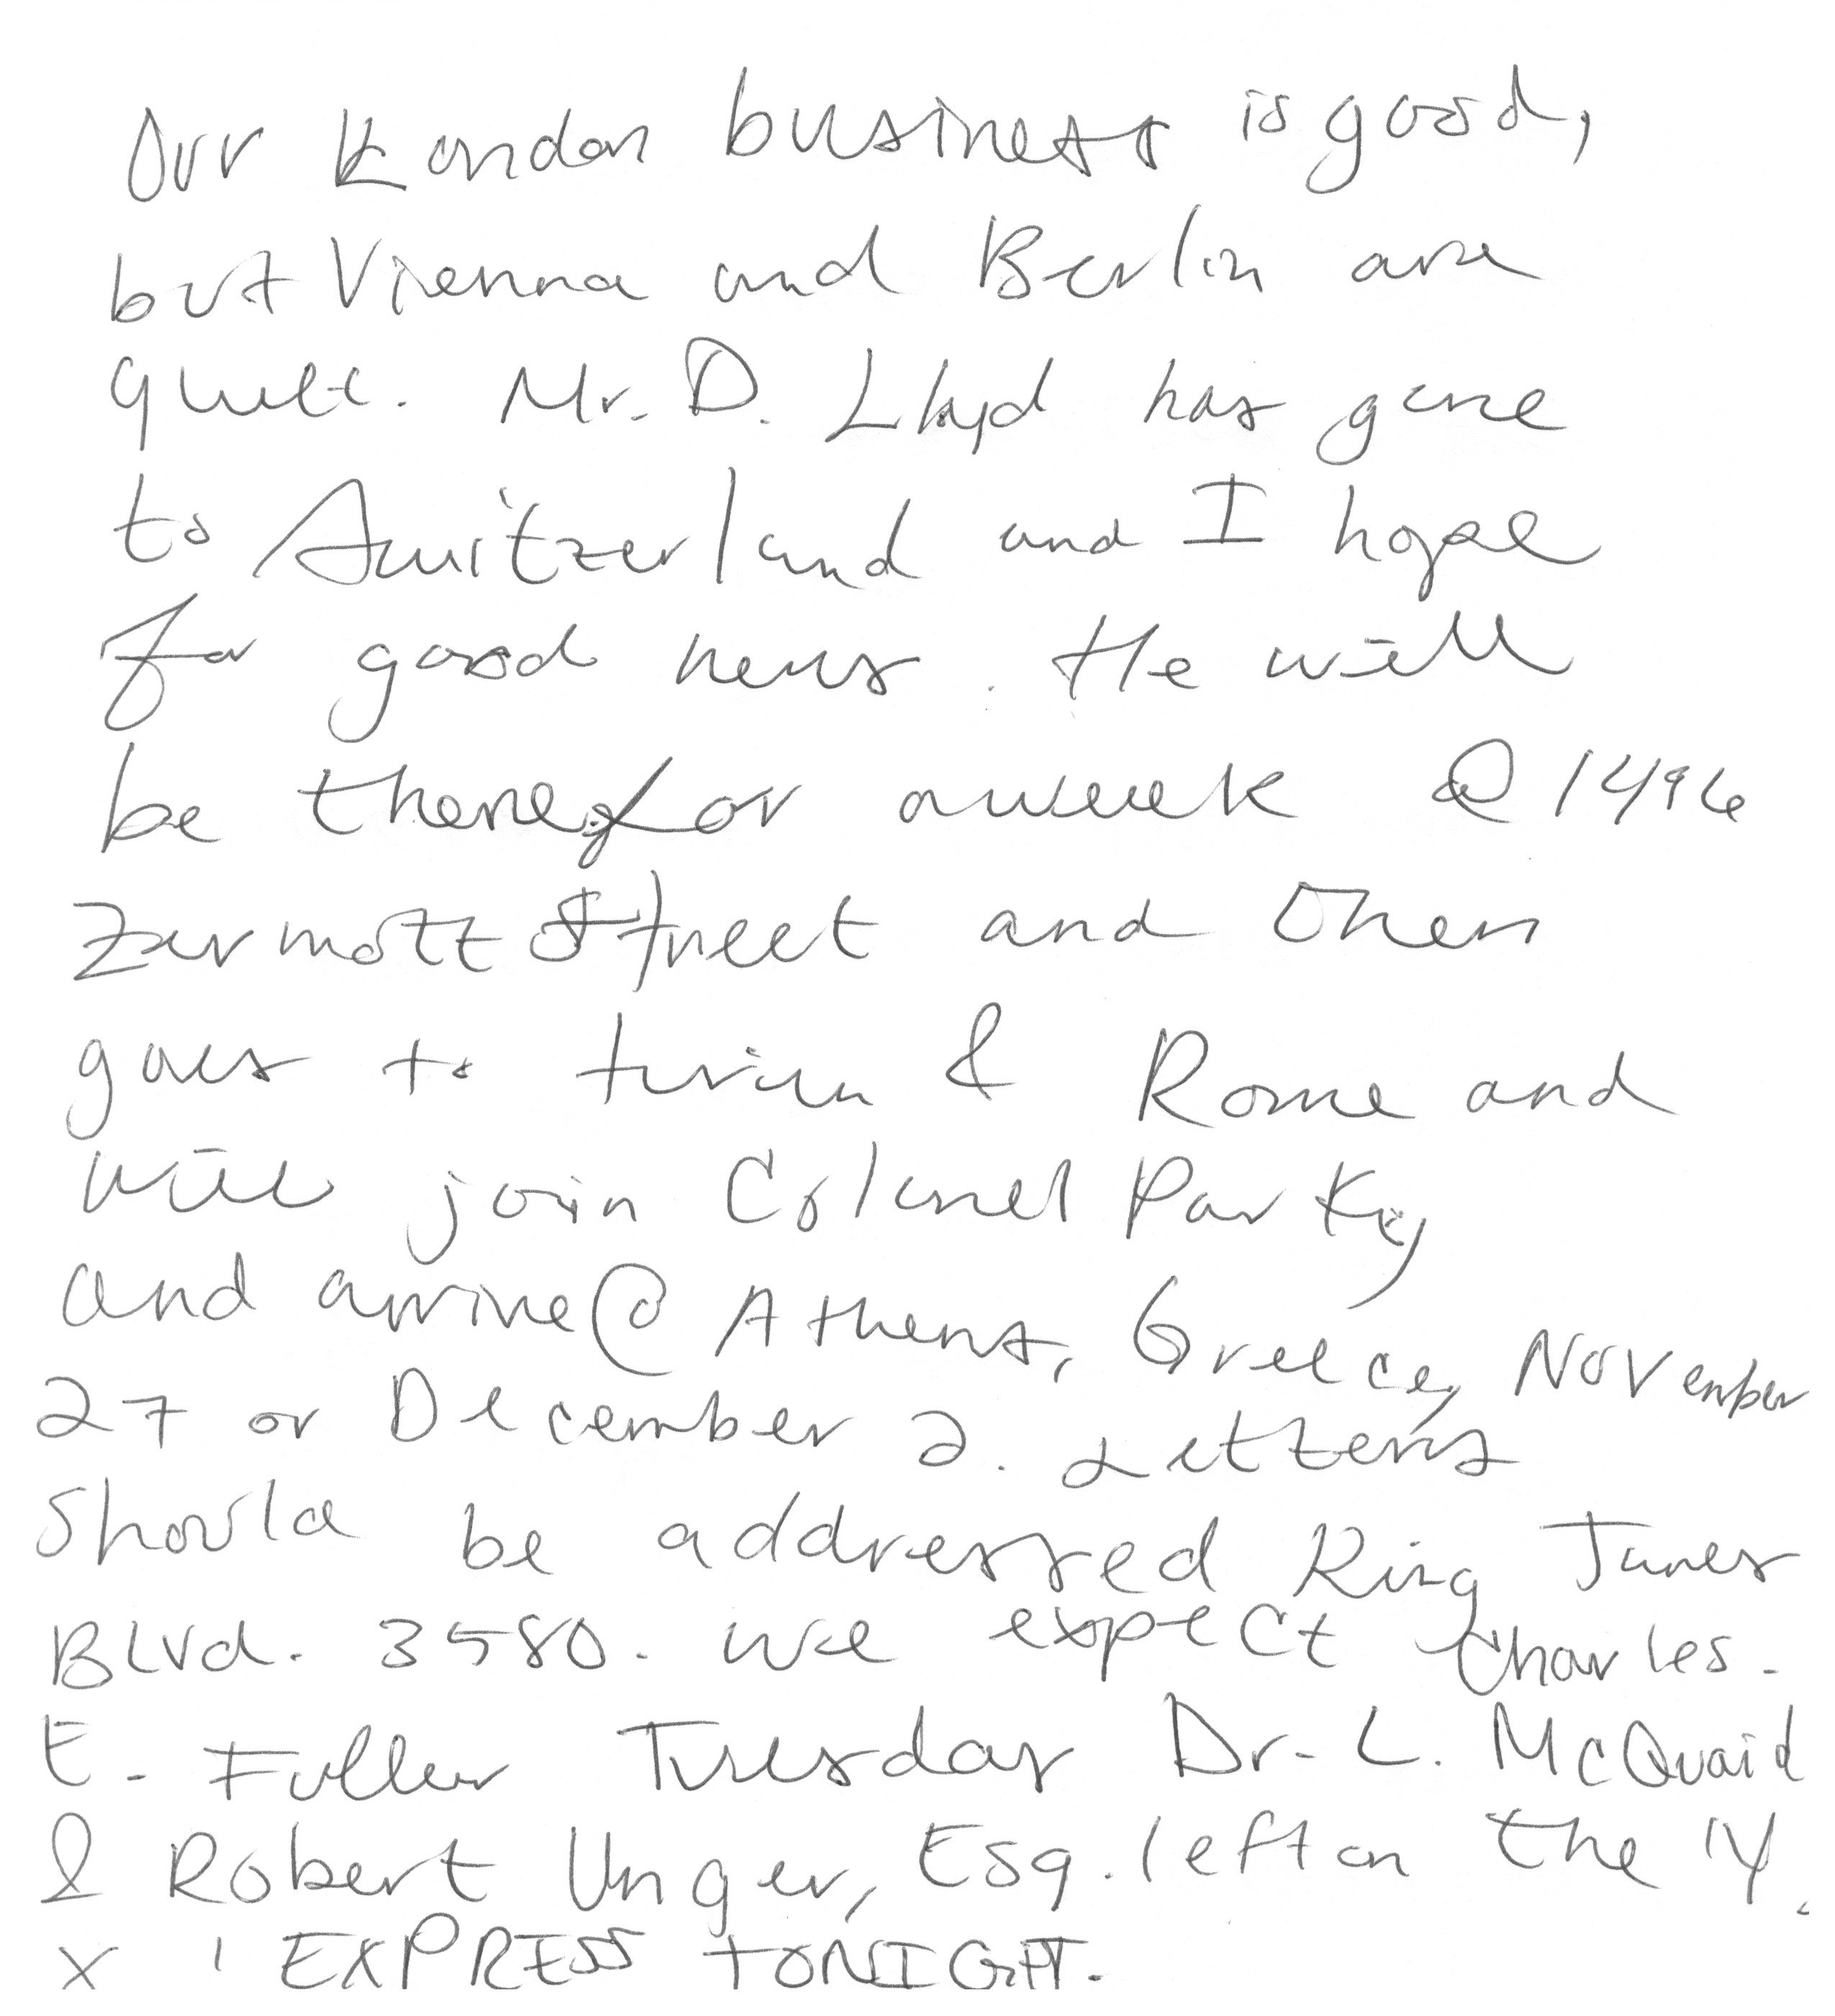 Our London business is good,
but Vienna and Berlin are
quiet. Mr. D. Lloyd has gone
to Switzerland and I hope
for good news. He will
be there for a week @ 1496
Zermott Street and then
goes to turin & Rome and
will join Colonel Parky
and arrive @ Athens, Greece, November
27 or December 2. Letters
should be addressed King James
Blvd. 3580. We expect Charles.
E. Fuller Tuesday Dr. L. McQuaid
& Robert Unger, Esq. left on the 'Y.
X ' EXPRESS TONIGHT.